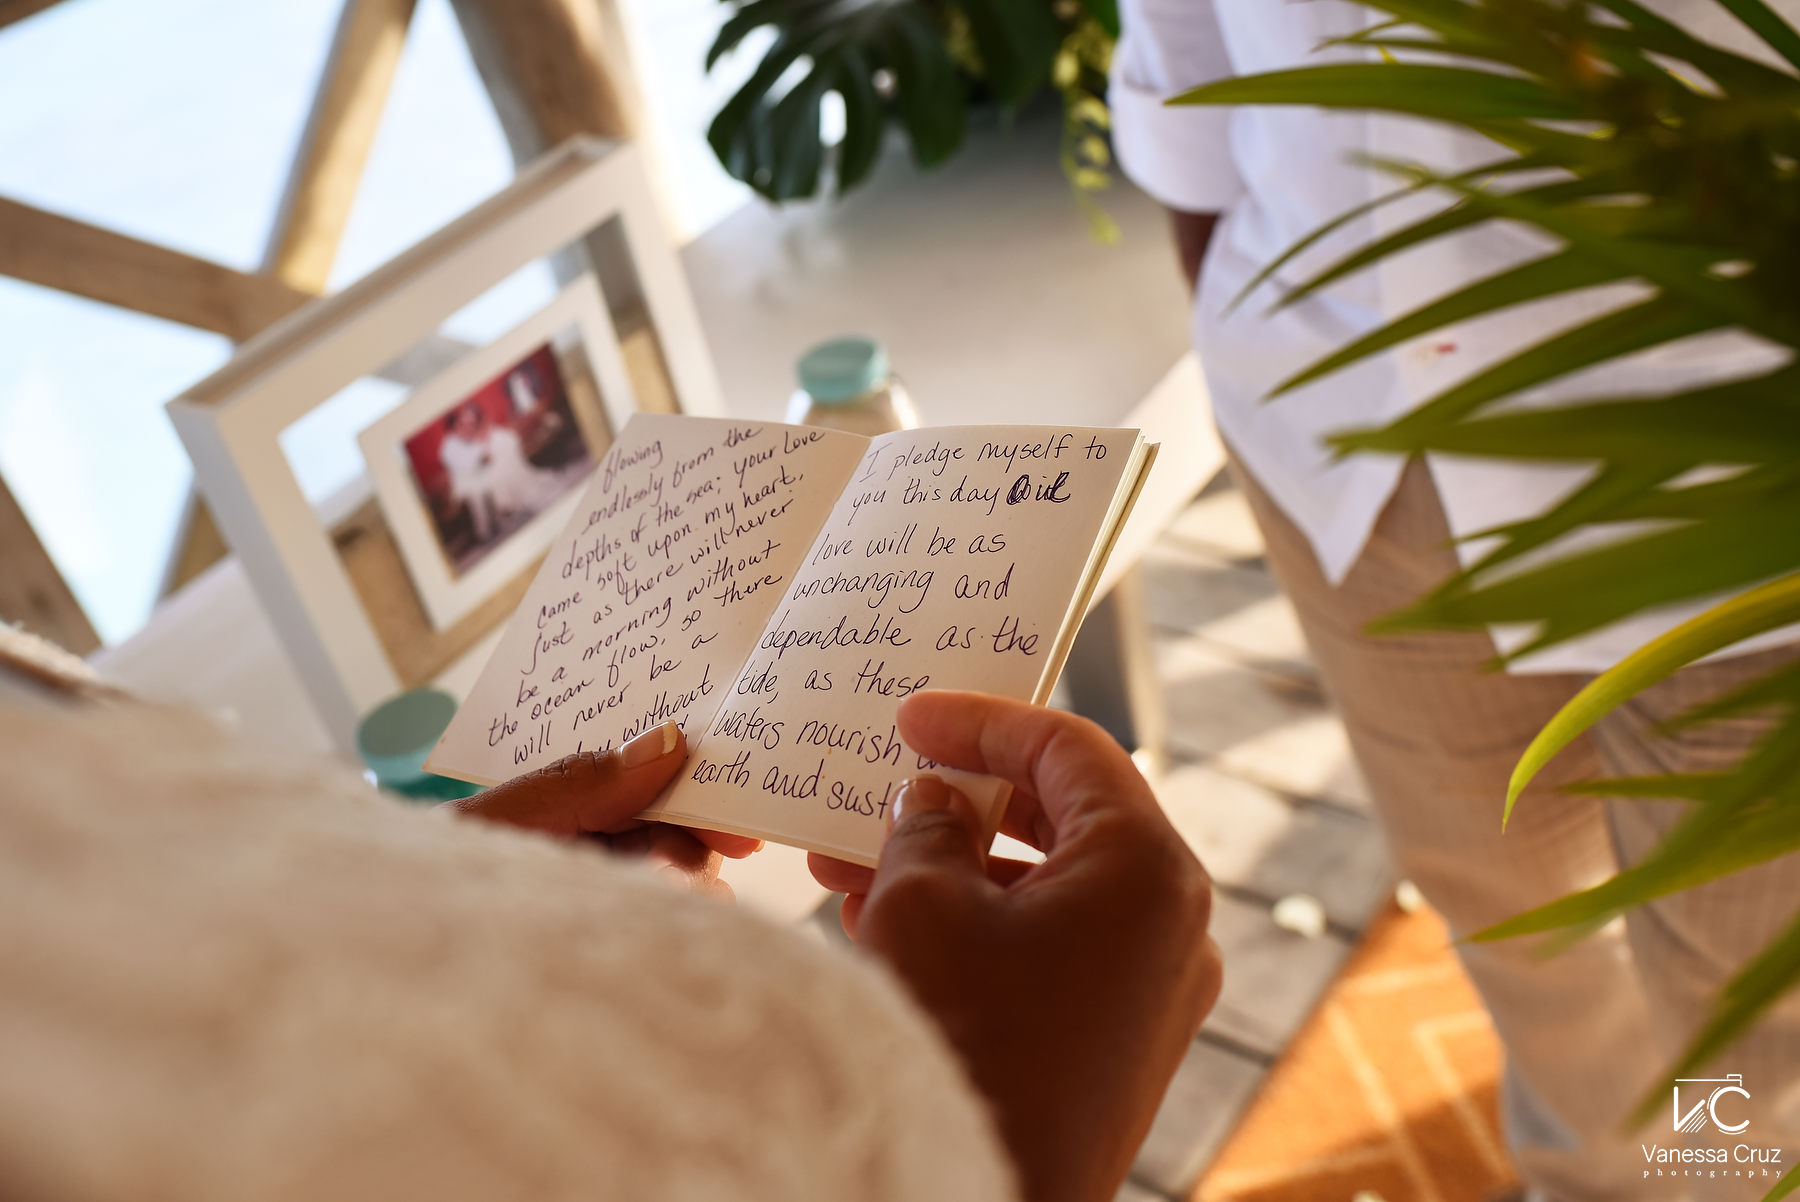 flowing
endlessly from the
depths of the sea; your love
came soft upon my heart,
just as there will never
be a morning without
the ocean flow, so there
will never be a
without
I pledge myself to
you this day
love will be as
unchanging and
dependable as the
tide, as these
waters nourish
earth and sust
VC
Vanessa Cruz
photography